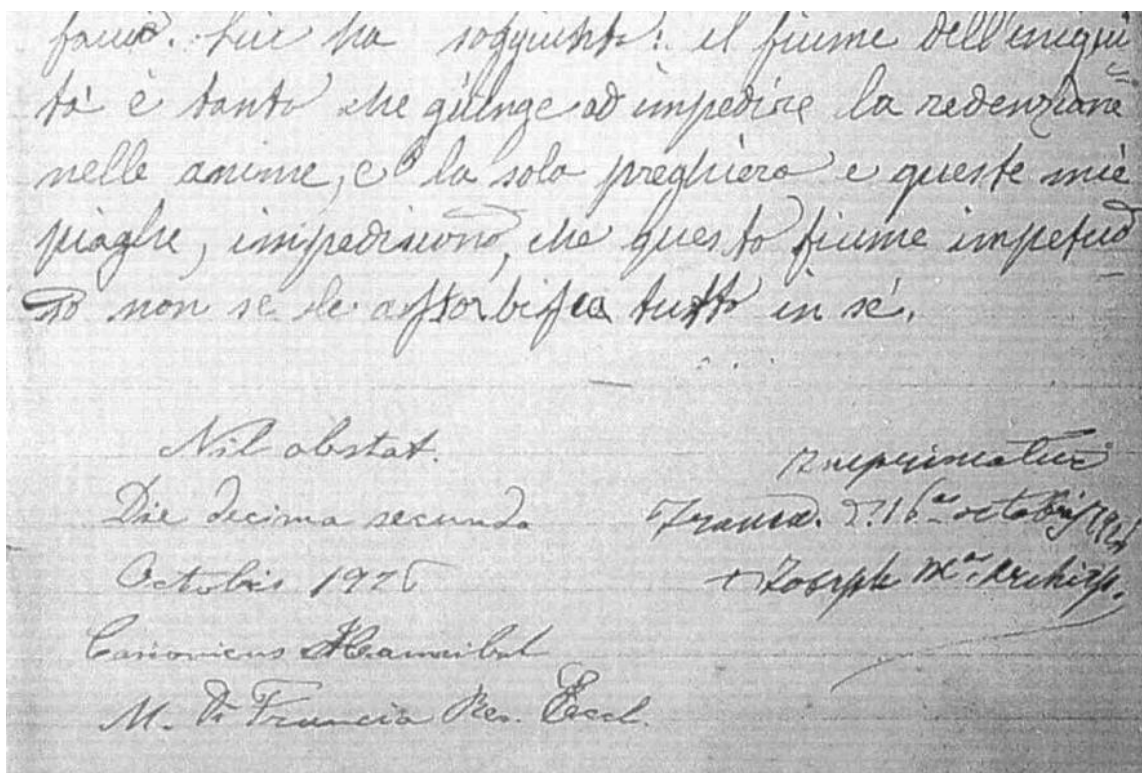 ha soggiunto: il fiume dell'iniqui
tà è tanto che giunge ad impedire la redenzione
nelle anime, e la sola preghiera e queste mie
piaghe, impediscono, che questo fiume impetuo
so non se le assorbisca tutto in sé.
Nil obstat.
Die decima secunda
Octobris 1926
Canonicus Hannibal
M. Di Francia Rev. Eccl.
Imprimatur
octobris 1926
+ Joseph M.ª Archiep.